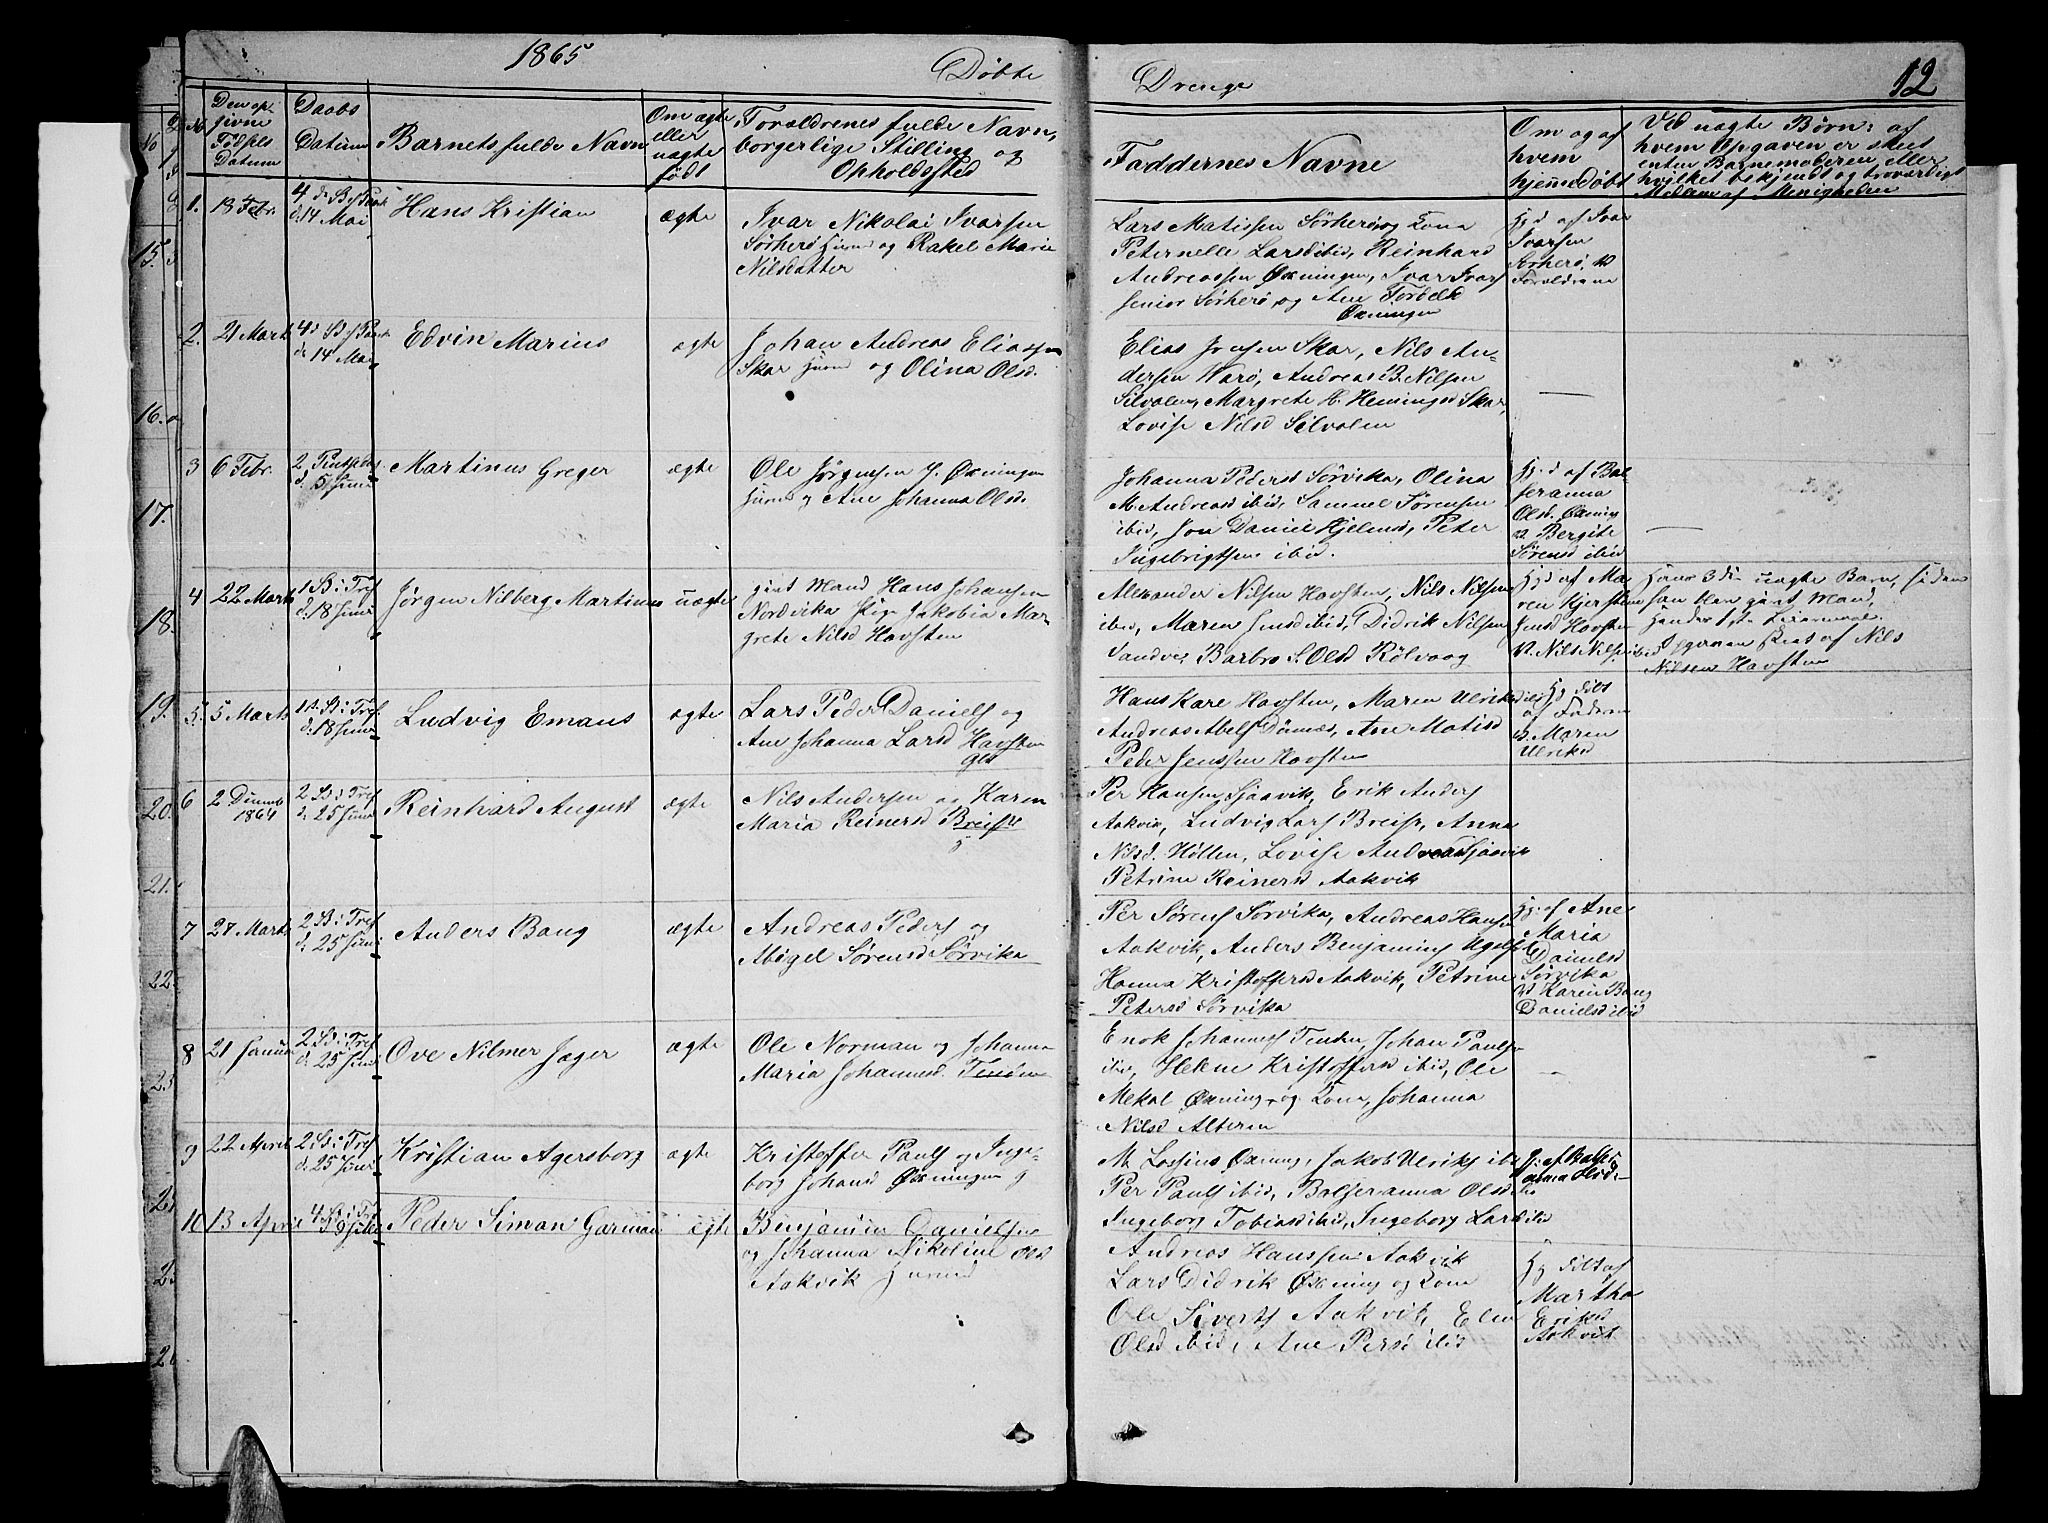 1865
Døbte
Drenge
12
No
Den op-
givne
Fødsels
Datum
Daabs
Datum
Barnets fulde Navn
Om ægte
eller
uægte
født
Forældrenes fulde Navn,
borgerlige Stilling og
Opholdssted
Faddernes Navne
Om og af
hvem
hjemmedøbt
Ved uægte Børn: af
hvem Opgaven er skeet
enten Barnemoderen eller
hvilket bekjendt og troværdigt
Medlem af Menigheden
1. 18 Febr.
d. 14 Mai
Hans Kristian
ægte
Ivar Nikolai Ivarsen
Sørherø Huusmd og Rakel Marie
Nilsdatter
Lars Matissen Sørherø og Kona
Peternelle Larsd ibid, Reinhard
Andreassen Øxningen, Ivar Ivars
senior Sørherø, og Ane Torbelk
Øxningen
Hjd af Ivar
Ivarsen
Sørherø,
Forældrene
2. 21 Marts
d. 14 Mai
Edvin Marius
ægte
Johan Andreas Eliassen
Skar Huusmd og Olina Olsd.
Elias Jensen Skar, Nils An-
dersen Warø, Andreas B. Nilsen
Silvalen, Margrete H. Hemingsd Skar,
Lovise Nilsd Silvalen
3 6 Febr.
2 Pintsedag
d. 5 Juni
Martinus Greger
ægte
Ole Jørgensen Øxningen
Huusmd og Ane Johanna Olsd.
Johanna Pedersd Sørvika, Olina
M. Andreasd ibid, Samuel Sørensen
ibid, Jon Daniel Hjelmsd, Peter
Ingebrigtsen ibid.
Hjd af Bal-
seranna
Olsd. Øxning
Bergite
Sørensd ibid
4 22 Marts
1 S. i Tref
d. 18 Juni
Jørgen Nilberg Martinus
uægte
gift Mand Hans Johansen
Nordvika Pige Jakobia Mar-
grete Nilsd Havsten
Alexander Nilsen Havsten, Nils Nilsen
ibid, Maren Jensd ibid, Didrik Nilsen
Sandve, Barbro S. Olsd Rølvaag
Hjd af Ma-
ren Kjerstine
Jensd Havsten
Nils Nilsen ibid
Hans 3die uægte Barn, siden
han blev gift Mand,
Hendes 1ste Leiermaal.
Opgaven skeet af Nils
Nilsen Havsten
5. 5 Marts
1 S. i Tref.
d. 18 Juni
Ludvig Emaus
ægte
Lars Peder Daniels og
Ane Johanna Larsd Havsten
Hans Kare Havsten, Maren Ulriksd ibid
Andreas Abels Dønnes, Ane Matisd
Peder Jenssen Havsten
Hj. dbt
af Faderen
Maren
Ulriksd
6 2 Decemb
1864
2 S. i Tref
d. 25 Juni
Reinhard August
ægte
Nils Andersen og Karen
Maria Reinersd Breist
Per Hansen Sjaavik, Erik Anders
Aakvik, Ludvig Lars Breist, Anna
Nilsd. Hollen, Lovise Andreasd Sjaavik
Petrine Reinersd Aakvik
7 27 Marts
2 S. i Tref
d. 25 Juni
Anders Bang
ægte
Andreas Peders og
Abigel Sørensd Sørvika
Per Sørens Sørvika, Andreas Hansen
Aakvik, Anders Benjamins
Hanna Kristoffersd Aakvik, Petrine
Petersd Sørvika
Hj. af Ane
Maria
Danielsd
Sørvika
Karen Bang
Danielsd ibid
8 21 Januar
2 S. i Tref
d. 25 Juni
Ove Nilmer Jæger
ægte
Ole Norman og Johanna
Maria Johannesd. Tenden
Enok Johannes Tenden, Johan Pauls
ibid, Helene Kristoffersd ibid, Ole
Mekal Øxning, og Kona, Johanna
Nilsd Alteren
9 22 April
2 S. i Tref
d. 25 Juni
Kristian Agersborg
ægte
Kristoffer Pauls og Inge-
borg Johansd Øxningen
M. Lassius Øxning, Jakob Ulriks ibid
Per Pauls ibid, Balseranna Olsd ibid
Ingeborg Tobiasd ibid, Ingeborg Larsd ibid
Hj. af Balser-
anna Olsd
10 13 April
4 S. i Tref
d. 9 Juli
Peder Simon Garman
ægte
Benjamin Danielsen
og Johanna Nikoline Olsd
Aakvik Huusmd
Andreas Hanssen Aakvik
Lars Didrik Øxning og Kona
Ole Siverts Aakvik, Elen
Olsd ibid, Ane Persd ibid
Hj dbt af
Martha
Eriksd
Aakvik
15.
16.
17.
18.
19.
20.
21.
22.
23